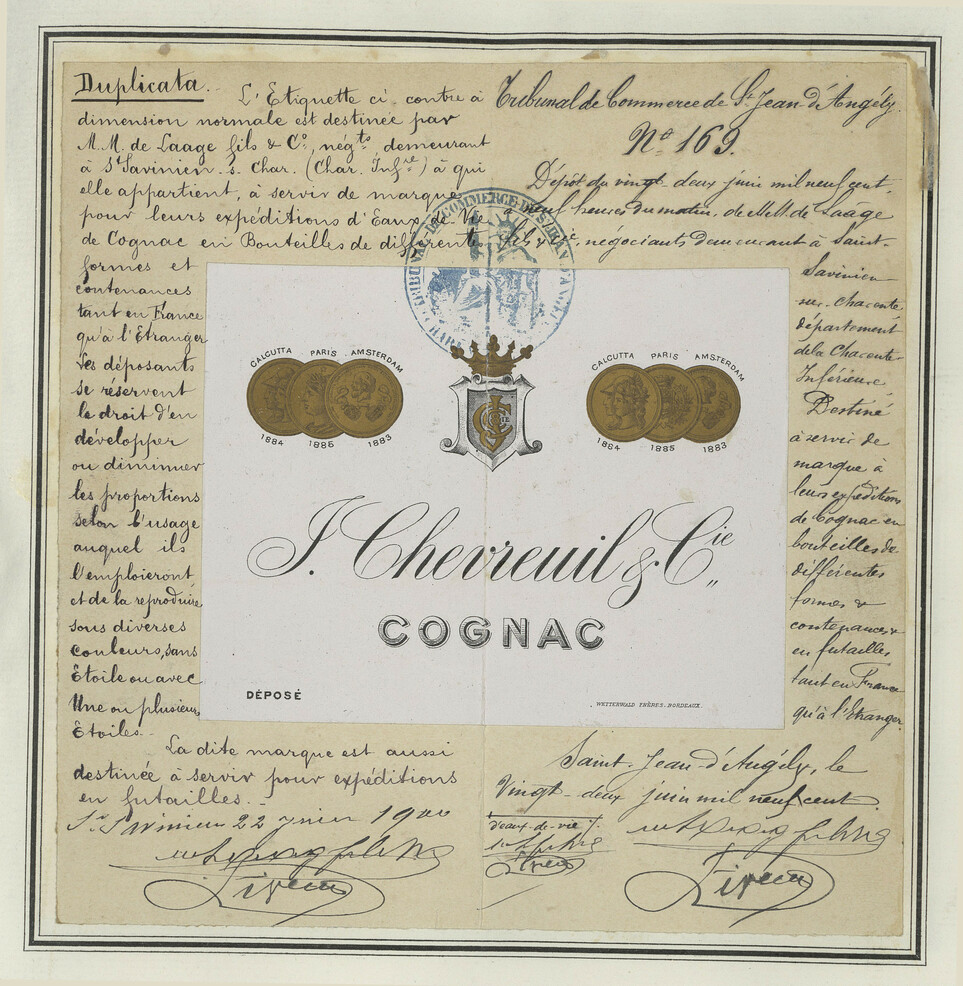 Duplicata.
L'Etiquette ci contre à
dimension normale est destinée par
M.M. de Laage fils & Cº, négts, demeurant
à St Savinien s. Char. (Char. Infre) à qui
elle appartient, à servir de marque
pour leurs expéditions d'Eaux de Vie
de Cognac en Bouteilles de différentes
formes et
contenances
tant en France
qu'à l'Etranger
Les déposants
se réservent
le droit d'en
développer
ou diminuer
les proportions
selon l'usage
auquel ils
l'emploieront,
et de la reproduire
sous diverses
couleurs, sans
Etoile ou avec
Une ou plusieurs
Etoiles.
La dite marque est aussi
destinée à servir pour expéditions
en futailles.
St Savinien 22 juin 1900
Tribunal de Commerce de St Jean d'Angély.
Nº 169.
Dépôt du vingt-deux juin mil neuf cent,
à neuf heures du matin, de M.M. de Laage
fils & Cie, négociants demeurant à Saint-
Savinien
sur-Charente
département
de la Charente-
Inférieure
Destiné
à servir de
marque à
leurs expéditions
de Cognac en
bouteilles de
différentes
formes &
contenances &
en futailles,
tant en France
qu'à l'Etranger.
Saint-Jean-d'Angély, le
Vingt-deux juin mil neuf cent.
d'eaux-de-vie
TRIBUNAL DE COMMERCE DE ST JEAN D'ANGELY
CALCUTTA PARIS AMSTERDAM
1884 1885 1883
CALCUTTA PARIS AMSTERDAM
1884 1885 1883
J. Chevreuil & Cie
COGNAC
DÉPOSÉ
WETTERWALD FRÈRES. BORDEAUX.